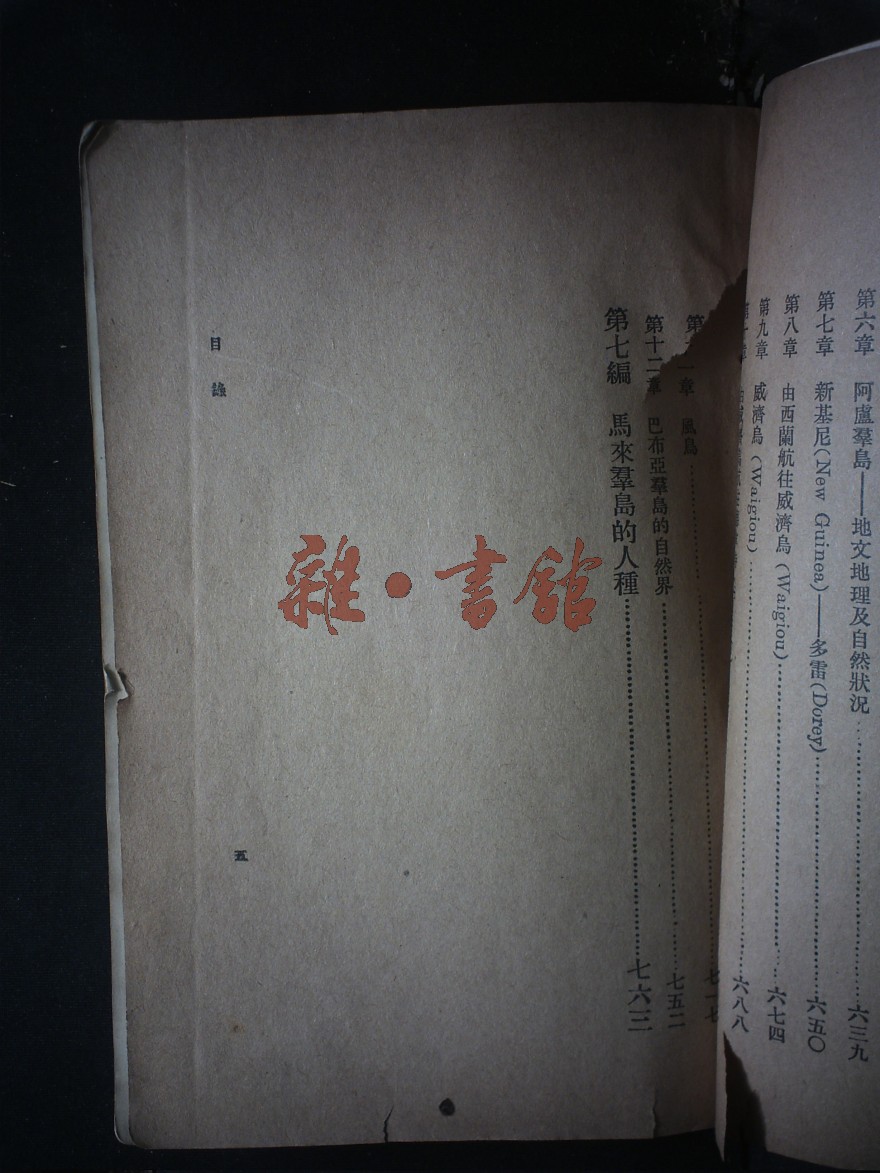 第六章 阿盧羣島——地文地理及自然狀況……六三九
第七章 新基尼(New Guinea)——多雷(Dorey)……六五〇
第八章 由西蘭航往威濟烏(Waigiou)……六七四
第九章 威濟烏(Waigiou)……六八八
章 風鳥……七一七
第十二章 巴布亞羣島的自然界……七五二
第七編 馬來羣島的人種……七六三
目錄
五
雜·書館